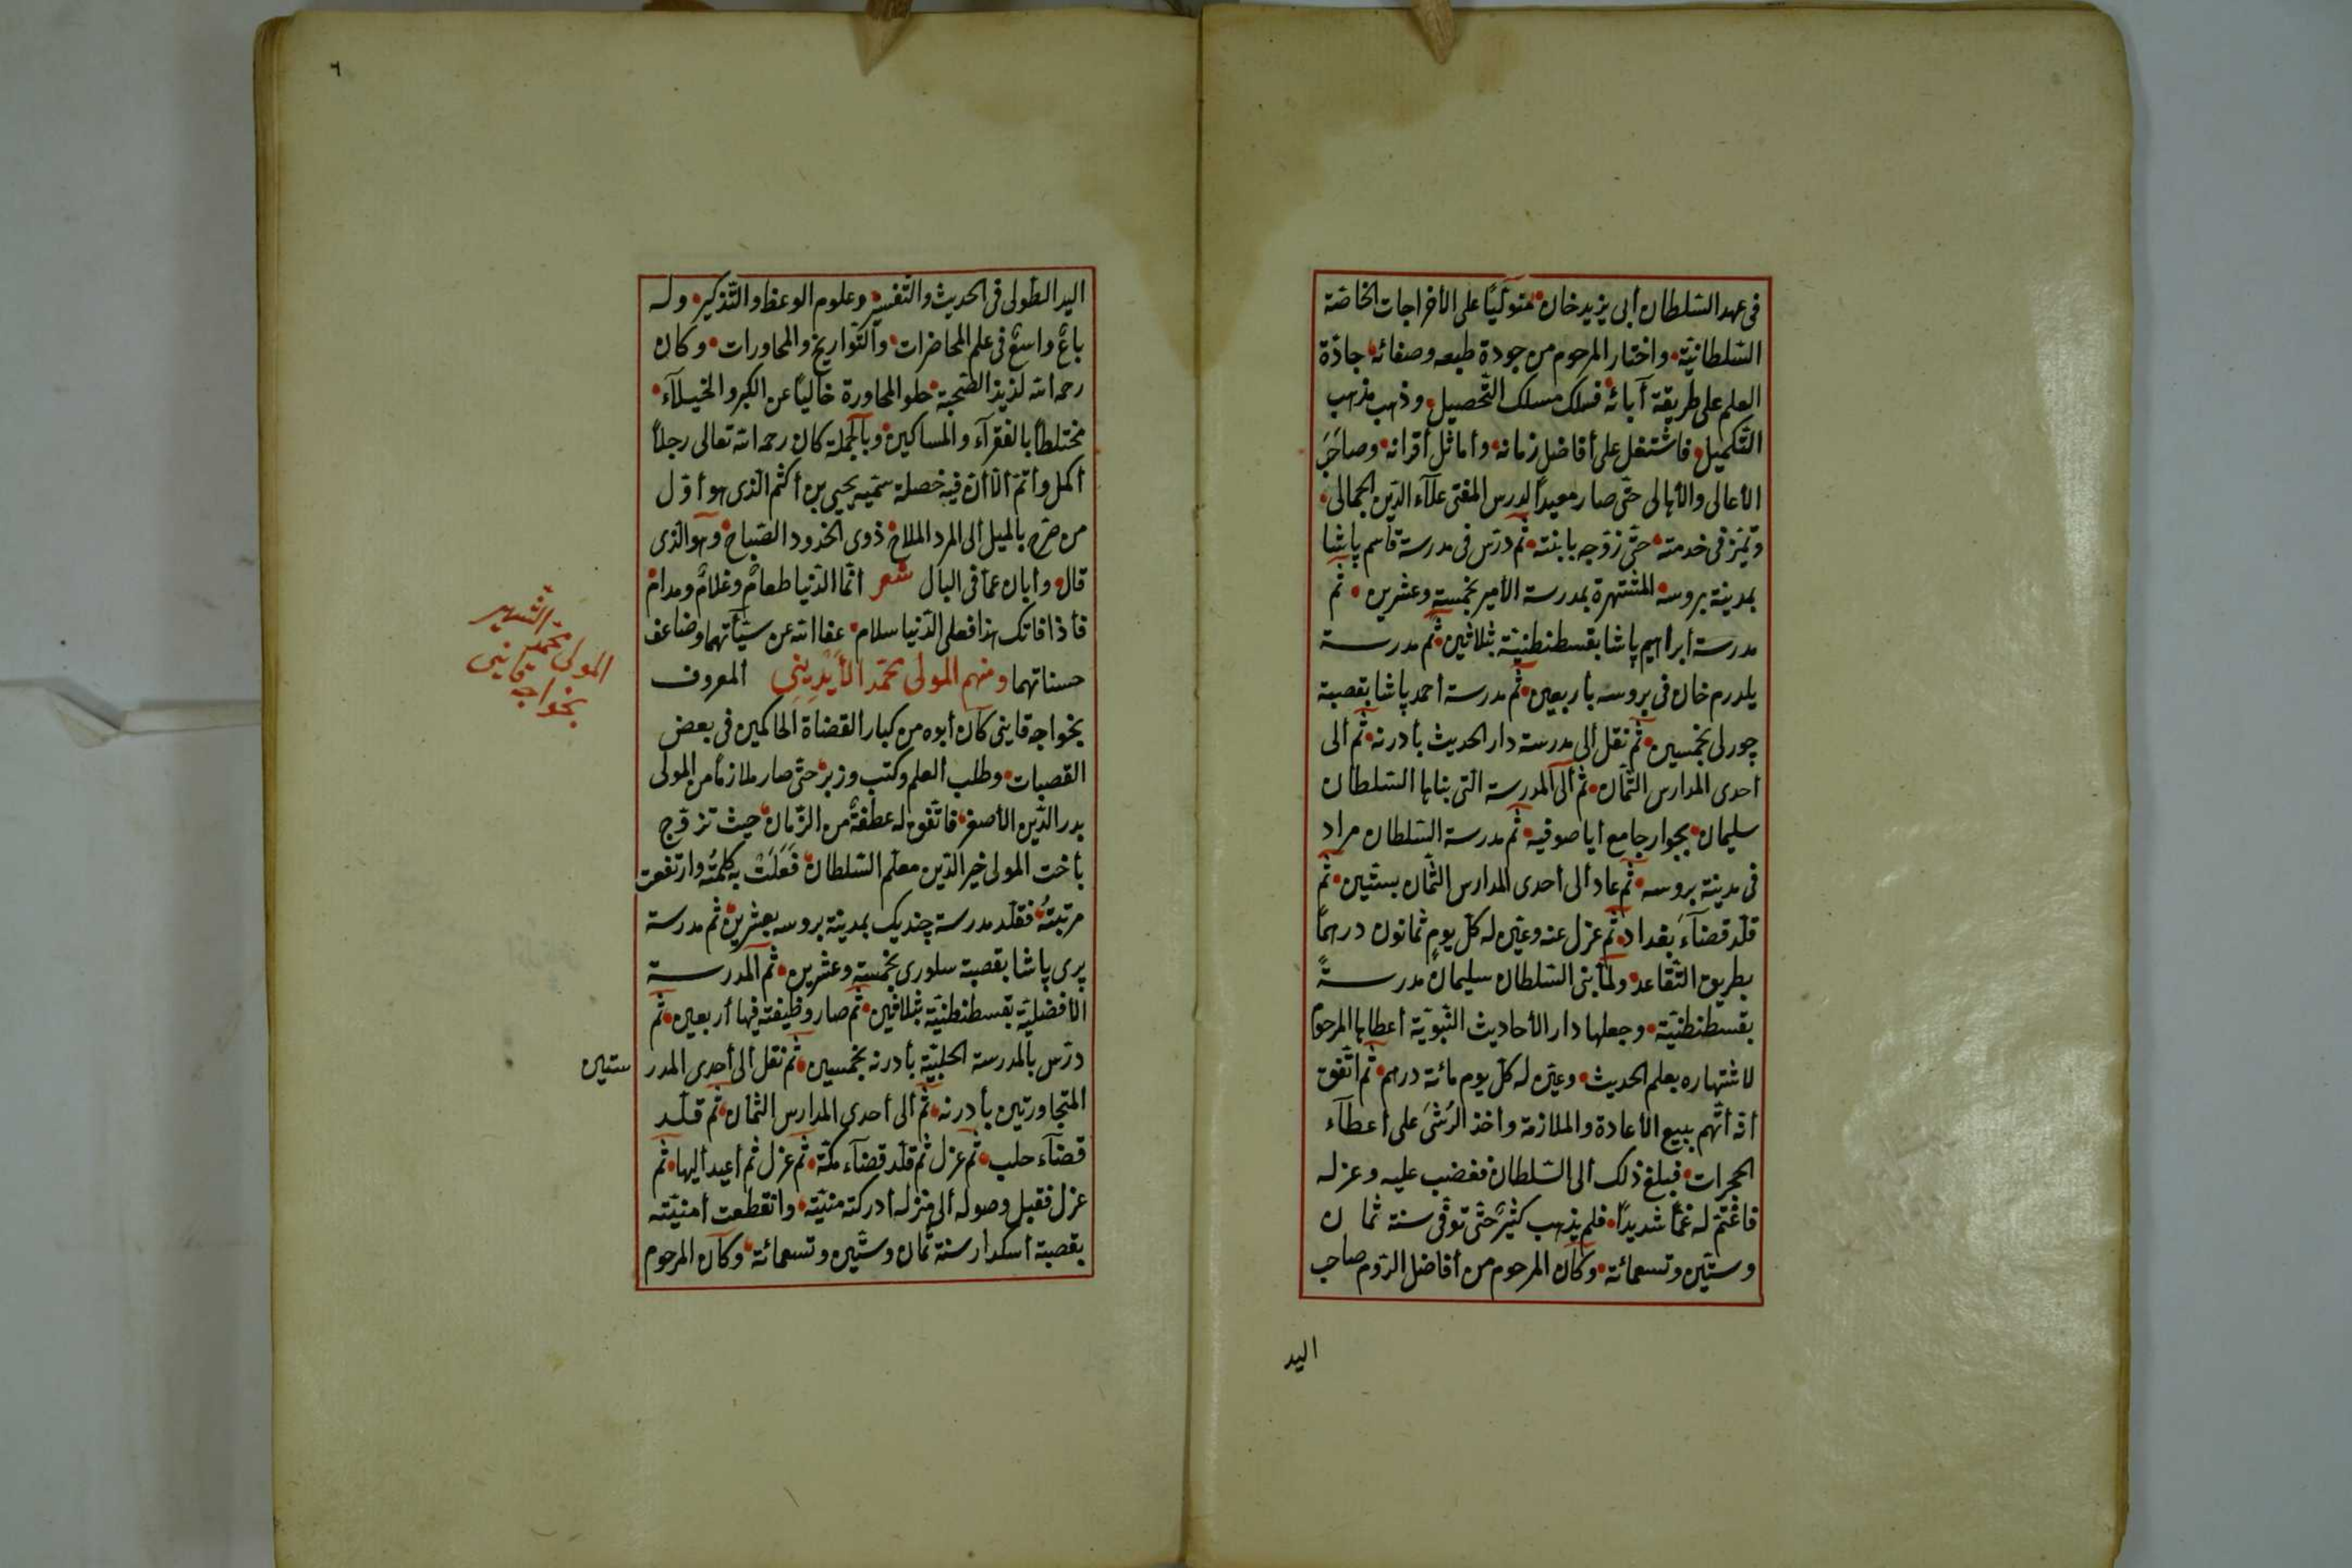 فى عهد السّلطان أبى يزيد خان متولّيًا على الأخراجات الخاصّة
السّلطانيّة واختار المرحوم من جودة طبعه وصفائه جادّة
العلم على طريقة آبائه فسلك مسلك التّحصيل وذهب مذهب
التّكميل فاشتغل على أفاضل زمانه وأماثل أقرانه وصاحَبَ
الأعالى والأهالى حتّى صار معيدًا لدرس المفتى علاء الدّين الجمالى
وتميّز فى خدمته حتّى زوّجه بابنته ثم درّس فى مدرسة قاسم پاشا
بمدينة بروسه المشتهرة بمدرسة الأمير بخمسة وعشرين ثم
مدرسة ابراهيم پاشا بقسطنطنيّة بثلاثين ثم مدرسة
يلدرم خان فى بروسه بأربعين ثم مدرسة أحمد پاشا بقصبة
چورلى بخمسين ثم نقل ألى مدرسة دار الحديث بأدرنه ثم ألى
أحدى المدارس الثّمان ثم ألى المدرسة التى بناها السّلطان
سليمان بجوار جامع أيا صوفيه ثم مدرسة السّلطان مراد
فى مدينة بروسه ثم عاد ألى أحدى المدارس الثّمان بستّين ثم
قلّد قضآءَ بغداد ثم عزل عنه وعيّن له كلّ يومٍ ثمانون درهمًا
بطريق التّقاعد ولمّا بنى السّلطان سليمان مدرسةً
بقسطنطنيّة وجعلها دار الأحاديث النّبويّة أعطاها المرحوم
لاشتهاره بعلم الحديث وعيّن له كلّ يوم مائة درهم ثم اتّفق
أنّه أتّهم ببيع الأعادة والملازمة وأخذ الرُشَى على أعطآء
الحجرات فبلغ ذلك الى السّلطان فغضب عليه وعزله
فاغتمّ له غمًّا شديدًا فلم يذهب كثيرٌ حتّى توفّى سنة ثمان
وستّين وتسعمائة وكان المرحوم من أفاضل الرّوم صاحب
اليد
٦
اليد الطّولى فى الحديث والتّفسير وعلوم الوعظ والتّذكير وله
باعٌ واسعٌ فى علم المحاضرات والتّواريخ والمحاورات وكان
رحمه الله لذيذ الصّحبة حلو المحاورة خاليًا عن الكبر والخيلآء
مختلطًا بالفقرآء والمساكين وبالجملة كان رحمه الله تعالى رجلًا
أكمل وأتمّ ألّا أنّ فيه خصلة سميّه يحيى بن أكثم الّذى هو أوّل
من صرّح بالميل ألى المرد الملاح ذوى الخدود الصّباح وهو الّذى
قال وأبان عمّا فى البال شعر أنّما الدّنيا طعامٌ وغلامٌ ومدام
فأذا فاتك هذا فعلى الدّنيا سلام عفا الله عن سيّأتهما وضاعف
حسناتهما ومنهم المولى محمّد الأَيْدِينِى المعروف
بخواجه قاينى كان أبوه من كبار القضاة الحاكمين فى بعض
القصبات وطلب العلم وكتب وزبر حتّى صار ملازمًا من المولى
بدر الدّين الأصفر فاتّفق له عطفةٌ من الزّمان حيث تزوّج
بأخت المولى خير الدّين معلّم السّلطان فَعَلَتْ به كلمتُه وارتفعت
مرتبتُه فقلّد مدرسة چنديك بمدينة بروسه بعشرين ثم مدرسة
پرى پاشا بقصبة سلورى بخمسة وعشرين ثم المدرسة
الأفضليّة بقسطنطنيّة بثلاثين ثم صار وظيفته فيها أربعين ثم
درّس بالمدرسة الحلبيّة بأدرنه بخمسين ثم نقل ألى أحدى المدر ستين
المتجاورتين بأدرنه ثم ألى أحدى المدارس الثّمان ثم قلّد
قضآء حلب ثم عزل ثم قلّد قضآء مكّة ثم عزل ثم أعيد أليها ثم
عزل فقبل وصوله ألى منزله أدركته منيّته وانقطعت أمنيّته
بقصبة أسكدار سنة ثمان وستّين وتسعمائة وكان المرحوم
المولى محمد الشهير
بخواجه قاينى